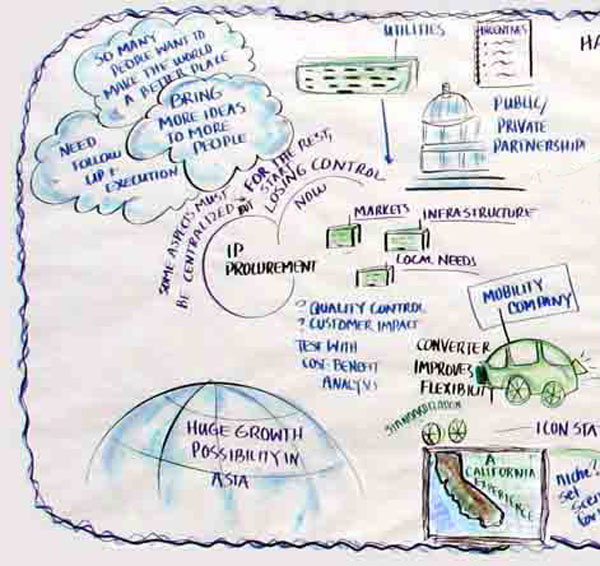 SO MANY
PEOPLE WANT TO
MAKE THE WORLD
A BETTER PLACE
BRING
MORE IDEAS
TO MORE
PEOPLE
NEED
FOLLOW
UP +
EXECUTION
SOME ASPECTS MUST
BE CENTRALIZED
BUT FOR THE REST,
START
LOSING CONTROL
NOW
IP
PROCUREMENT
UTILITIES
INCENTIVES
HA
PUBLIC/
PRIVATE
PARTNERSHIP
MARKETS
INFRASTRUCTURE
LOCAL NEEDS
? QUALITY CONTROL
? CUSTOMER IMPACT
TEST WITH
COST BENEFIT
ANALYSIS
MOBILITY
COMPANY
CONVERTER
IMPROVES
FLEXIBILITY
STANDARDIZATION
ICON STA
HUGE GROWTH
POSSIBILITY IN
ASIA
A
CALIFORNIA
EXPERIENCE
niche?
set